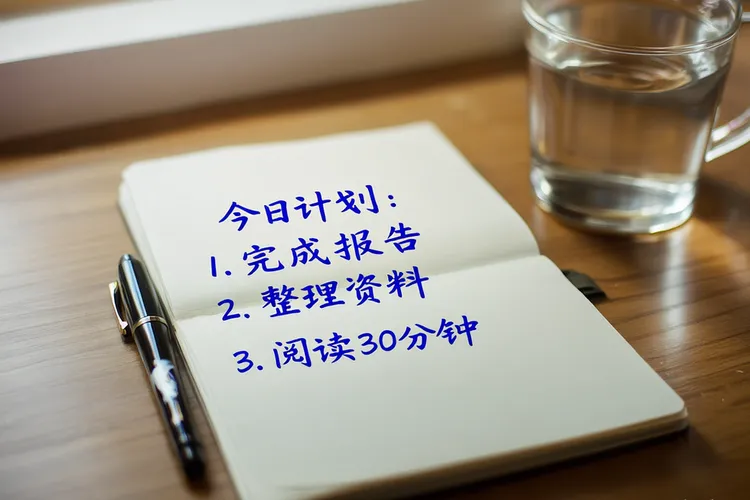 今日计划:
1. 完成报告
2. 整理资料
3. 阅读30分钟